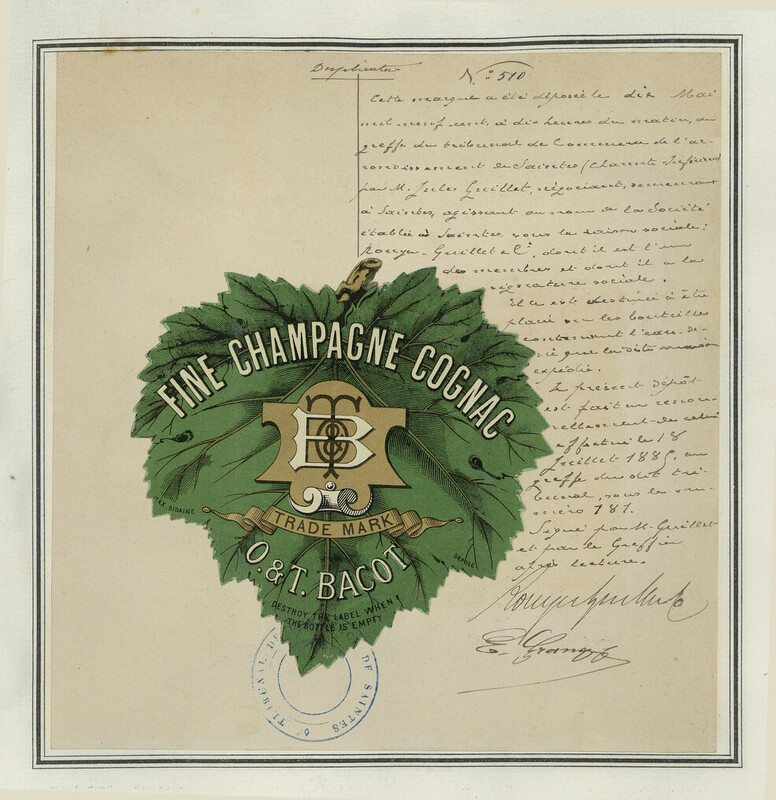 Duplicata
N.° 510
Cette marque a été déposée le dix Mai
mil-neuf-cent, à dix heures du matin, au
greffe du tribunal de Commerce de l'ar-
rondissement de Saintes (Charente Inférieure)
par M. Jules Guillet, négociant, demeurant
à Saintes, agissant au nom de la Société
établie à Saintes sous la raison sociale:
Rouyer-Guillet & Cie, dont il est l'un
des membres et dont il a la
signature sociale.
Elle est destinée à être
placée sur les bouteilles
contenant l'eau-de-
vie que la dite maison
expédie.
Le présent dépôt
est fait en renou-
vellement de celui
effectué le 18
Juillet 1885, au
greffe du dit tri-
bunal, sous le nu-
méro 181.
Signé par M. Guillet
et par le Greffier
après lecture.
Rouyer Guillet & Co
FINE CHAMPAGNE COGNAC
B T &
TRADE MARK
O. & T. BACOT
MAX. SIDAINE
DÉPOSÉ
DESTROY THE LABEL WHEN
THE BOTTLE IS EMPTY
DE SAINTES